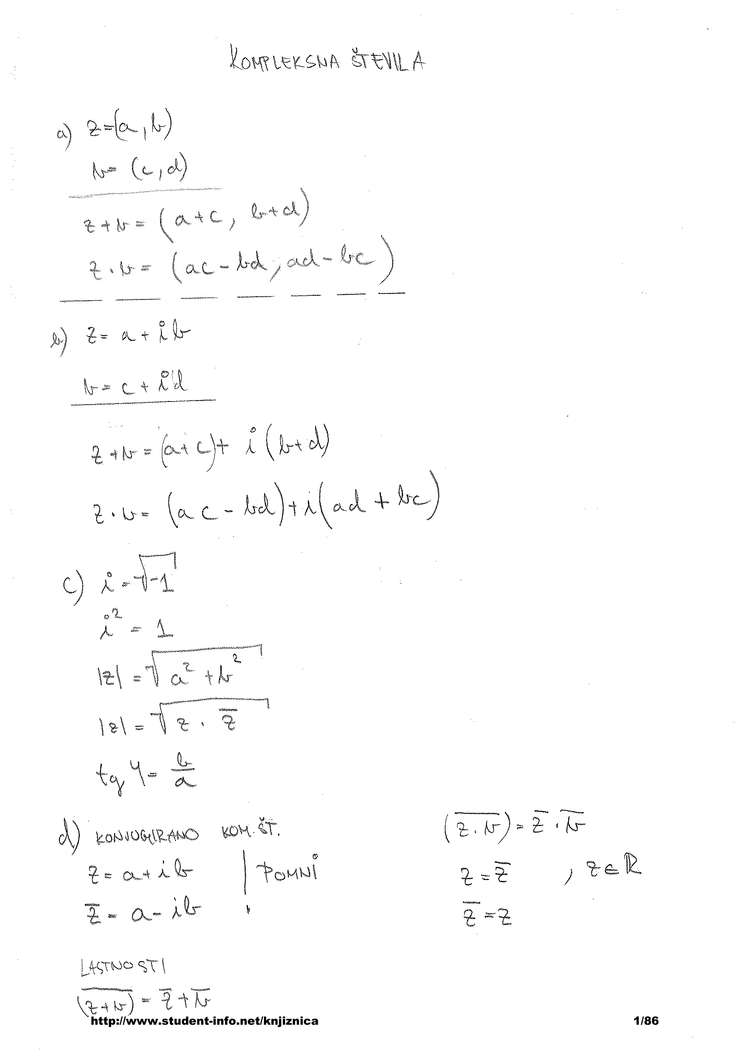 KOMPLEKSNA ŠTEVILA
a) z=(a,b)
v= (c,d)
z+v= (a+c, b+d)
z·v= (ac-bd, ad-bc)
b) z= a+ib
v= c+id
z+v=(a+c)+ i(b+d)
z·v= (ac-bd)+i(ad+bc)
c) i=√-1
i² = 1
|z| = √a²+b²
|z| = √z·z̅
tg φ= b/a
d) KONJUGIRANO KOM.ŠT.
z= a+ib | POMNI
z̅= a-ib !
LASTNOSTI
(z+v)̅ = z̅+v̅
(z·v)̅ = z̅·v̅
z=z̅ , z∈ℝ
z̅=z
http://www.student-info.net/knjiznica
1/86